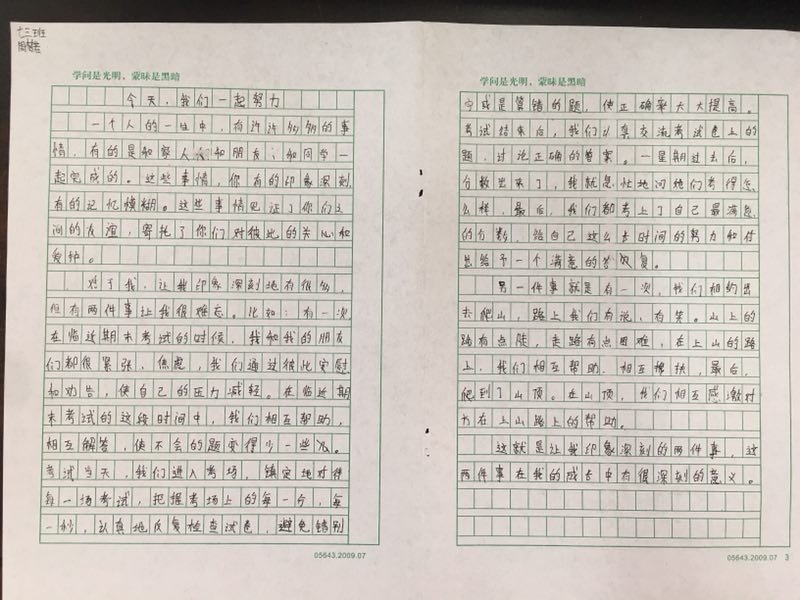 七三班
学问是光明，蒙昧是黑暗
今天，我们一起努力
一个人的一生中，有许许多多的事
情，有的是和家人们和朋友；和同学一
起完成的。这些事情，你有的印象深刻
有的记忆模糊。这些事情见证了你们之
间的友谊，寄托了你们对彼此的关心和
爱护。
对于我，让我印象深刻地有很多，
但有两件事让我很难忘。比如：有一次
在临近期末考试的时候，我和我的朋友
们都很紧张，焦虑，我们通过彼此安慰
和劝告，使自己的压力减轻。在临近期
末考试的这段时间中，我们相互帮助，
相互解答，使不会的题变得少一些。
考试当天，我们进入考场，镇定地对待
每一场考试，把握考场上的每一分，每
一秒，认真地反复检查试卷，避免错别
05643.2009.07
学问是光明，蒙昧是黑暗
字或是算错的题，使正确率大大提高。
考试结束后，我们认真交流考试卷上的
题，讨论正确的答案。一星期过去后，
分数出来了，我就急忙地问他们考得怎
么样，最后，我们都考上了自己最满意
的分数，给自己这么长时间的努力和付
出给予一个满意的答复。
另一件事就是有一次，我们相约出
去爬山，路上我们有说，有笑。山上的
路有点陡，走路有点困难，在上山的路
上，我们相互帮助，相互搀扶，最后，
爬到了山顶。在山顶，我们相互感激对
方在上山路上的帮助。
这就是让我印象深刻的两件事，这
两件事在我的成长中有很深刻的意义。
05643.2009.07 3